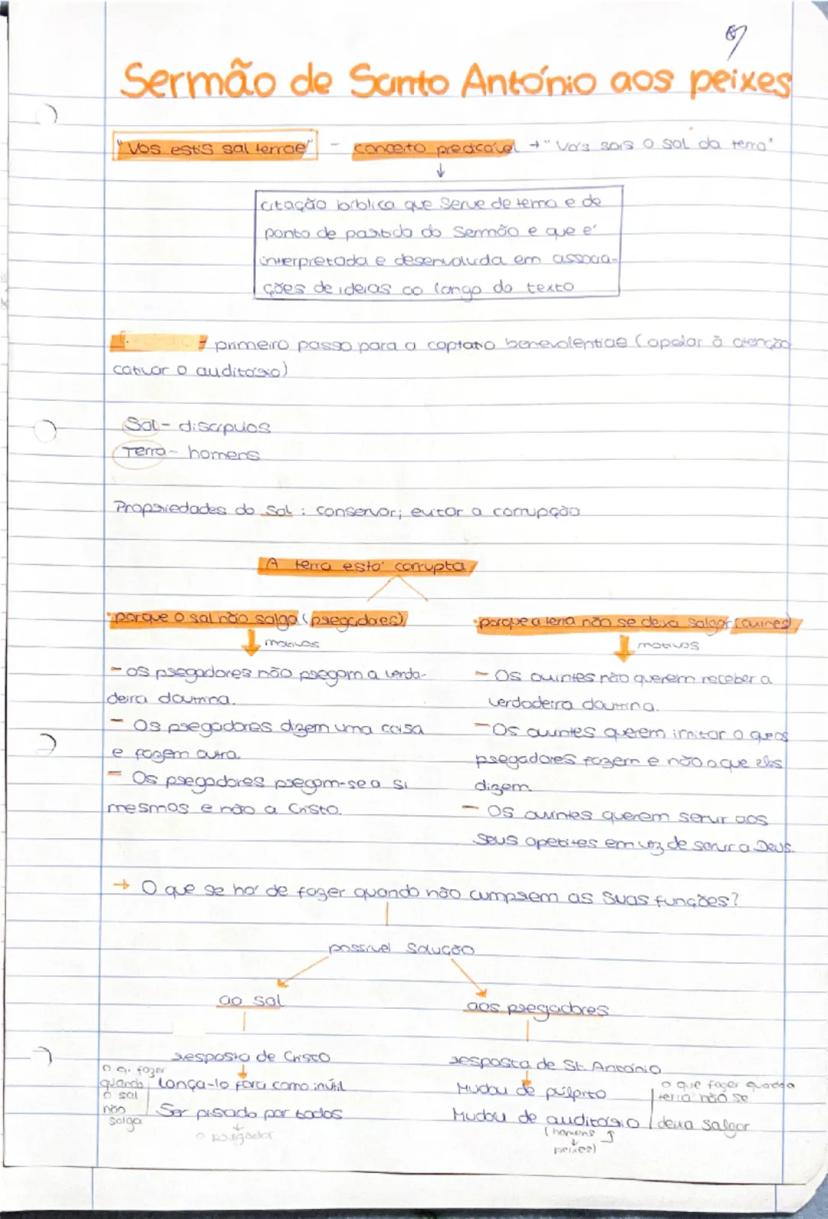 Sermão de Santo António aos peixes
"Vos estis sal terrae" - conceito predicável → "Vós sois o sal da terra"
citação bíblica que serve de tema e de
ponto de partida do sermão e que é
interpretada e desenvolvida em associa-
ções de ideias ao longo do texto
= primeiro passo para a captatio benevolentiae (apelar à atenção
cativar o auditório)
Sal - discípulos
Terra - homens
Propriedades do sal : conservar; evitar a corrupção
A terra está corrupta
porque o sal não salga (pregadores)
motivos
- os pregadores não pregam a verda-
deira doutrina.
- Os pregadores dizem uma coisa
e fazem outra.
- Os pregadores pregam-se a si
mesmos e não a Cristo.
porque a terra não se deixa salgar (ouvintes)
motivos
- Os ouvintes não querem receber a
verdadeira doutrina.
- Os ouvintes querem imitar o que os
pregadores fazem e não o que eles
dizem.
- Os ouvintes querem servir aos
seus apetites em vez de servir a Deus.
→ O que se há de fazer quando não cumprem as suas funções?
possível solução
ao sal
resposta de Cristo
Lança-lo fora como inútil
Ser pisado por todos
o pregador
o q. fazer
quando
o sal
não
salga
aos pregadores
resposta de St. António
Mudou de púlpito
Mudou de auditório
(homens
peixes)
o que fazer quando a
terra não se
deixa salgar